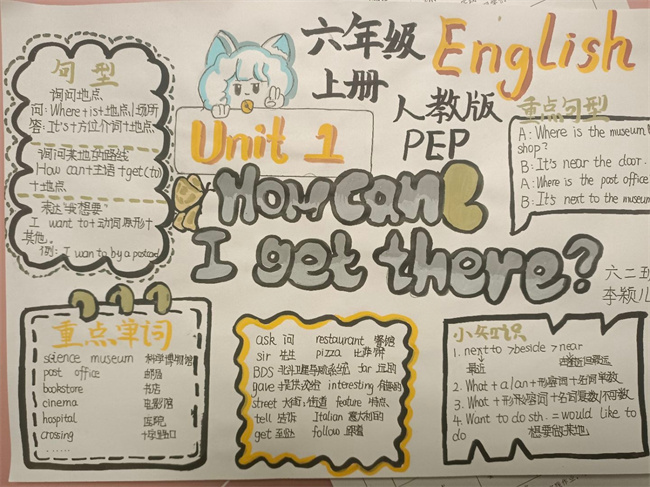 六年级
上册
English
人教版
PEP
Unit 1
How can
I get there?
六二班
李颖儿
句型
询问地点
问: Where+is+地点/场所
答: It's+方位介词+地点.
询问某地的路线
How can+主语+get(to)
+地点
表达"我想要"
I want to+动词原形+
其他。
例: I wan to by a postcard
重点句型
A: Where is the museum
shop?
B: It's near the door.
A: Where is the post office
B: It's next to the museum
重点单词
science museum 科学博物馆
post office 邮局
bookstore 书店
cinema 电影院
hospital 医院
crossing 十字路口
......
ask 问 restaurant 餐馆
sir 先生 pizza 比萨饼
BDS 北斗卫星导航系统 far 远的
gave 提供;交给 interesting 有趣的
street 大街;街道 feature 特点
tell 告诉 Italian 意大利的
get 到达 follow 跟着
小知识
1. next to >beside > near
最近
2. What+a/an+形容词+名词单数
3. What+形容词+名词复数/不可数
4. Want to do sth. = would like to
do 想要做某地.